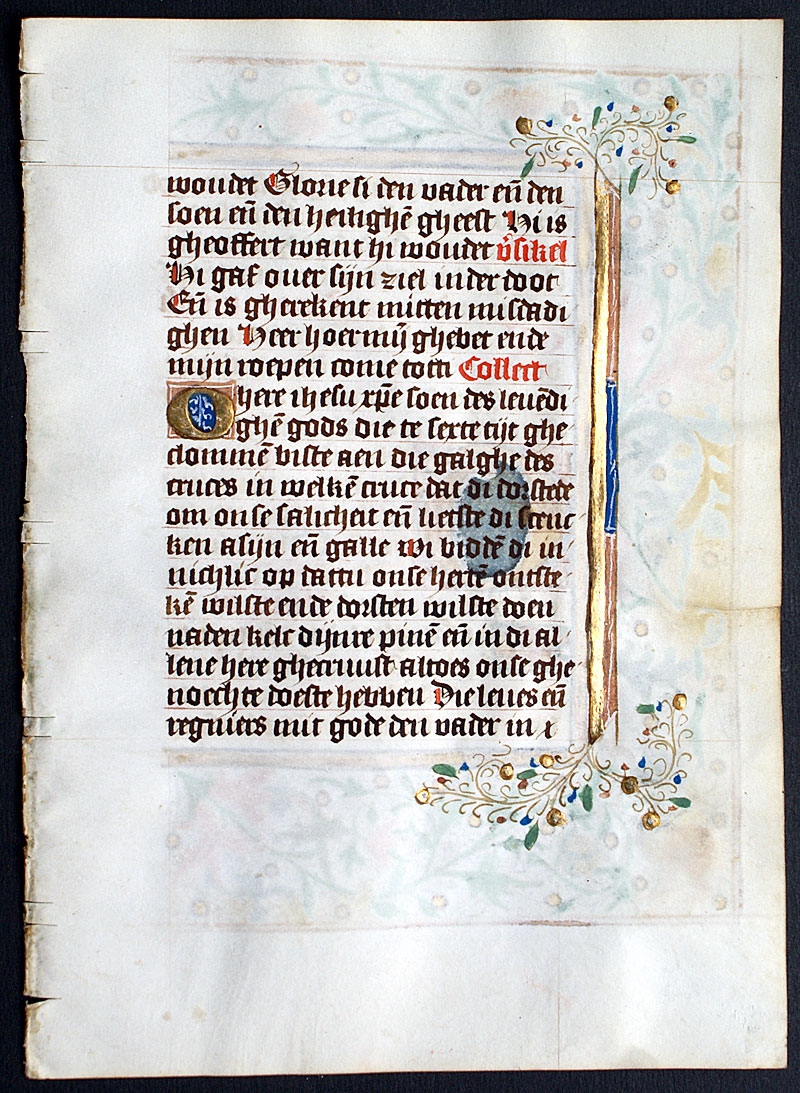 woudet Glorie si den vader eñ den
soen eñ den heilighē gheest Hi is
gheoffert want hi woudet v̄sikel
Hi gaf ouer sijn ziel in der doot
Eñ is gherekent mitten misdadi
ghen Heer hoer mijn ghebet ende
mijn roepen come totti Collect
O here ihesu xp̄e soen des leuēdi
ghē gods die te sexte tijt ghe
clommē biste aen die galghe des
cruces in welkē cruce dat di dorstede
om onse salicheit eñ lietste di scenc
ken asijn eñ galle Wi biddē di in
nichlic op dattu onse hertē ontste
kē wilste ende dorsten wilste doen
naden kelc dijnre pinē eñ in di al
lene here ghecruust altoes onse ghe
noechte doeste hebben Die leues eñ
regniers mit gode den vader in